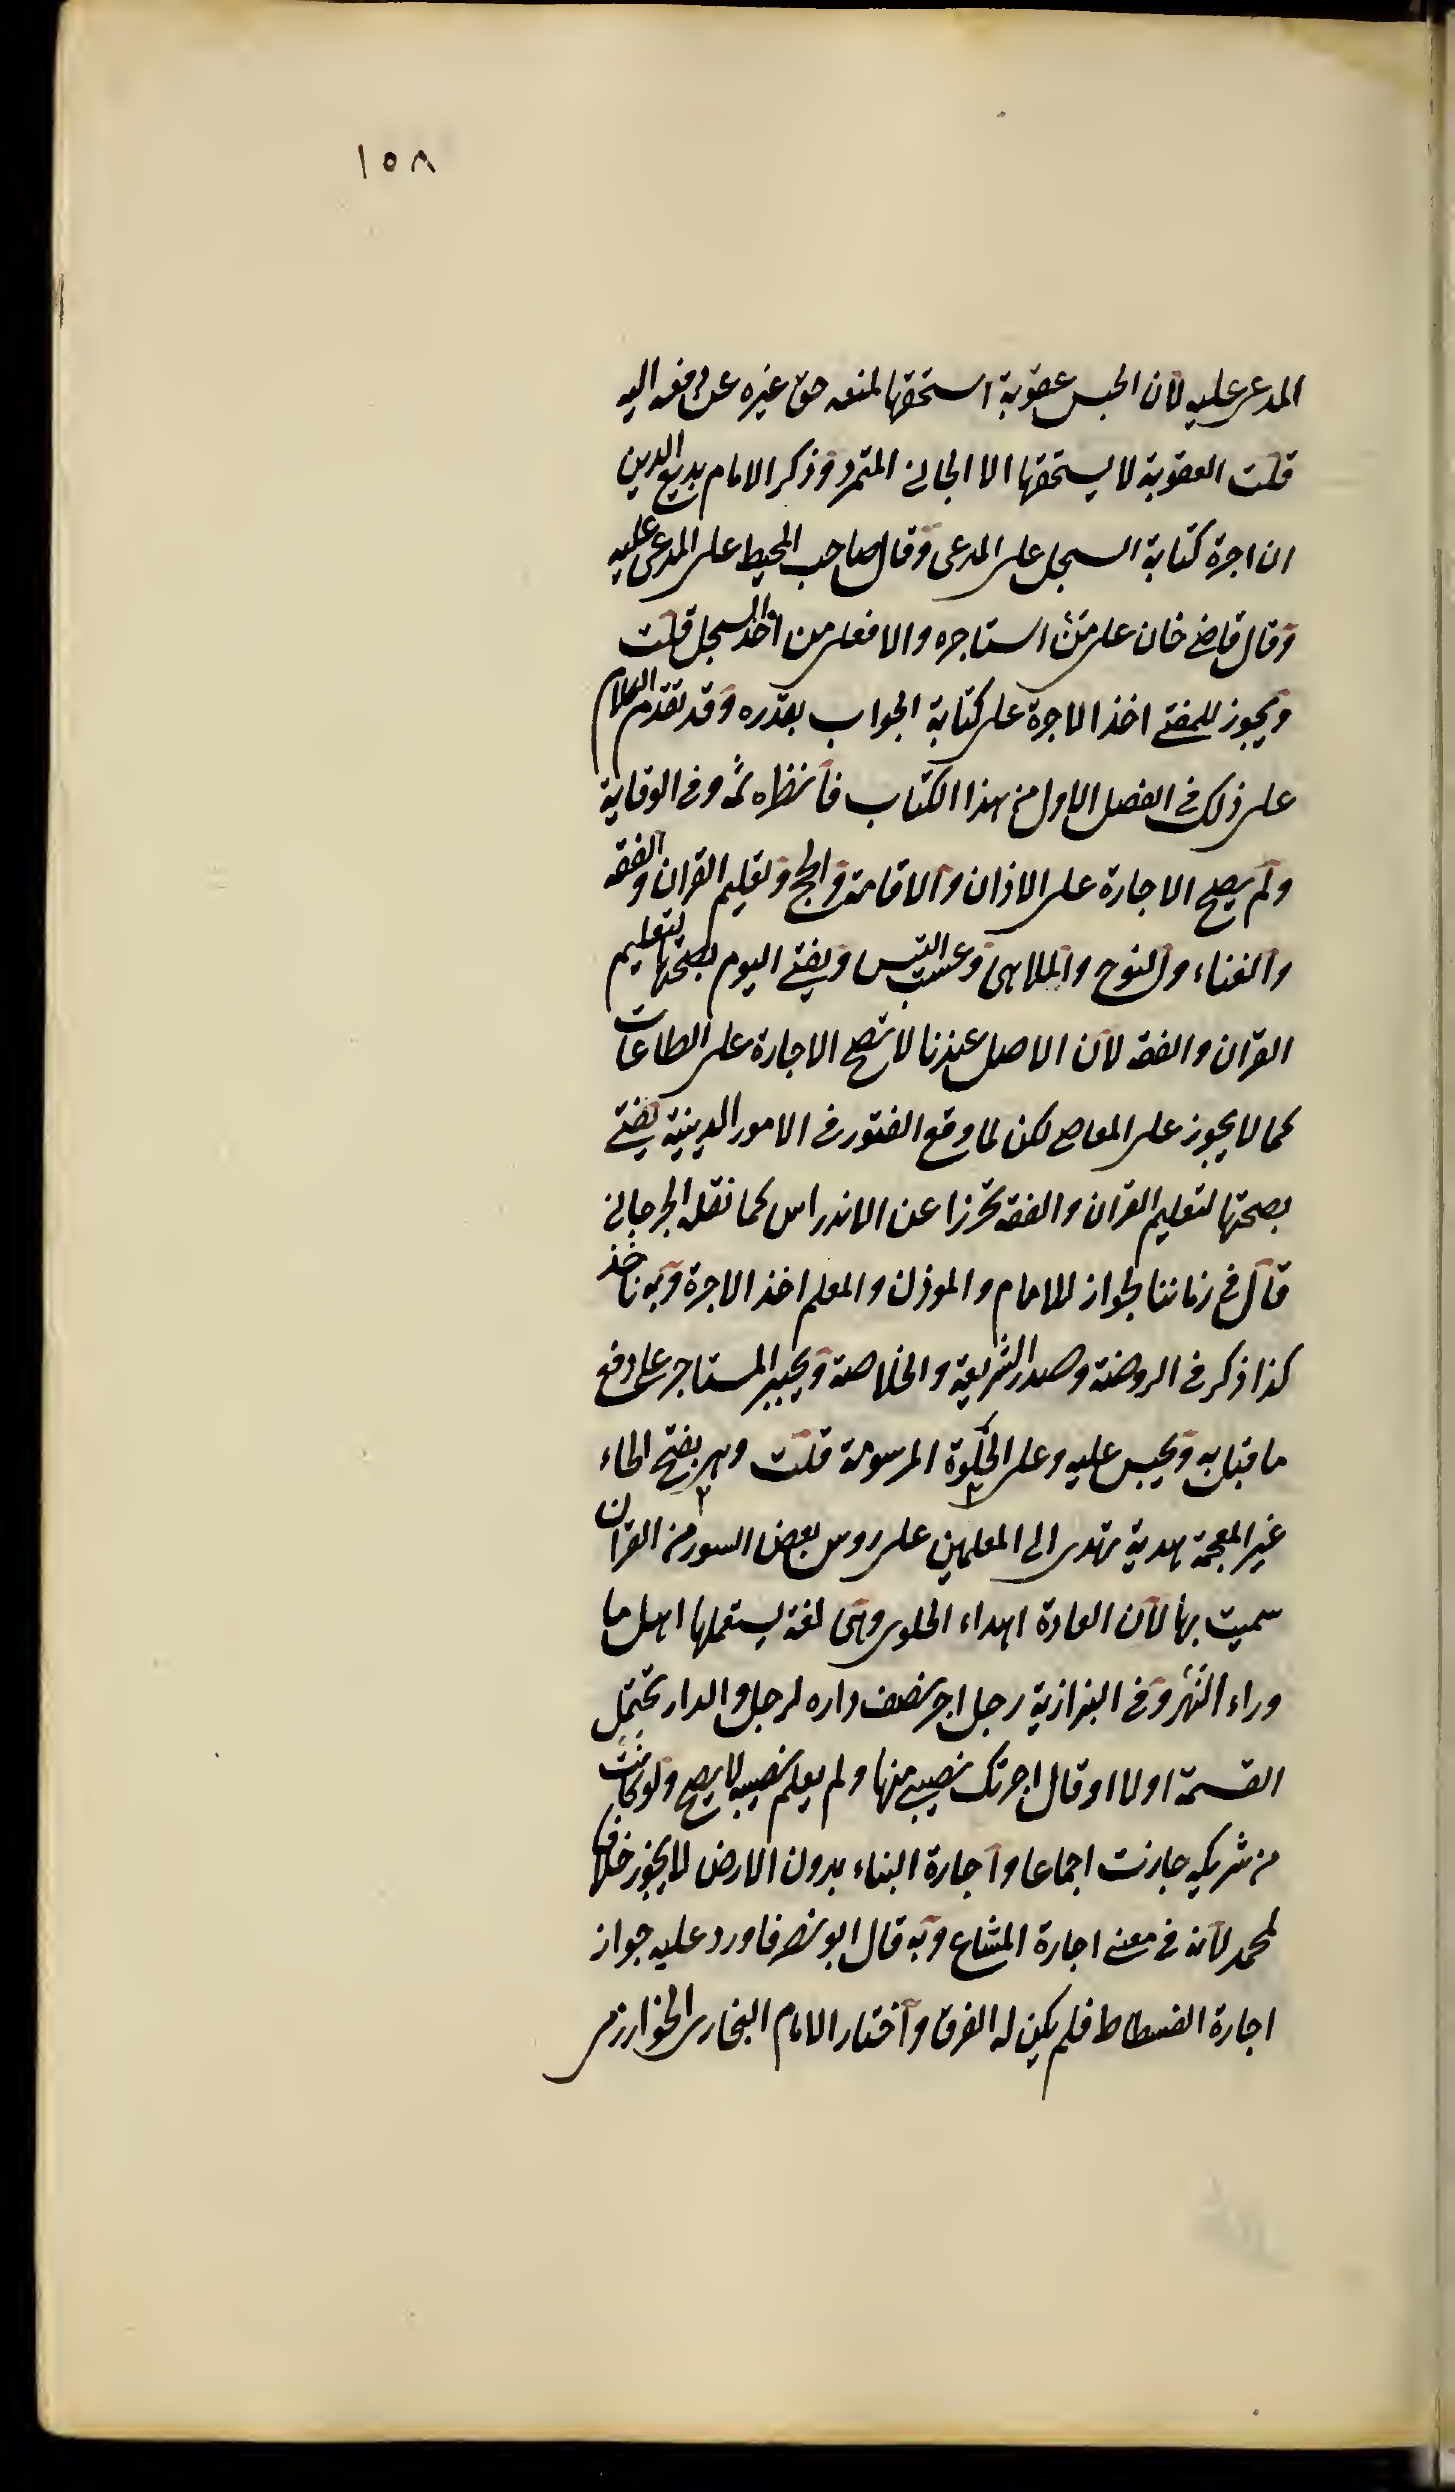 ١٥٨
المدعى عليه لان الحبس عقوبة استحقها لمنعه حق غيره عن دفعه اليه
قلت العقوبة لا يستحقها الا الجاني المتمرد وذكر الامام بديع الدين
ان اجرة كتابة السجل على المدعى وقال صاحب المحيط على المدعى عليه
وقال قاضي خان على من استاجره والا فعلى من اخذ السجل قلت
ويجوز للمفتي اخذ الاجرة على كتابة الجواب بقدره وقد تقدم الكلام
على ذلك في الفصل الاول من هذا الكتاب فانظره ثمه وفي الوقاية
ولم يصح الاجارة على الاذان والاقامة والحج وتعليم القران والفقه
والغناء والنوح والملاهى وعسب التيس ويفتي اليوم بصحتها لتعليم
القران والفقه لان الاصل عندنا لا تصح الاجارة على الطاعات
كما لا يجوز على المعاصي لكن لما وقع الفتور في الامور الدينية يفتي
بصحتها لتعليم القران والفقه تحرزا عن الاندراس كما نقله الجرجاني
قال في زماننا يجوز للامام والموذن والمعلم اخذ الاجرة وبه ناخذ
كذا ذكر في الروضة وصدر الشريعة والخلاصة ويجبر المستاجر على دفع
ما قبل به ويحبس عليه وعلى الحلوة المرسومة قلت وهى بفتح الحاء
غير المعجمة هدية تهدى الى المعلمين على روس بعض السور من القران
سميت بها لان العادة اهداء الحلوى وهى لغة يستعملها اهل ما
وراء النهر وفي البزازية رجل اجر نصف داره لرجل والدار تحتمل
القسمة او لا او قال اجرتك نصيبي منها ولم يعلم نصيبه لا يصح ولو كانت
من شريكه جازت اجماعا واجارة البناء بدون الارض لا يجوز خلافا
لمحمد لانه في معنى اجارة المشاع وبه قال ابو نصر فاورد عليه جواز
اجارة الفسطاط فلم يكن له الفرق واختار الامام البخارى الخوارزمى